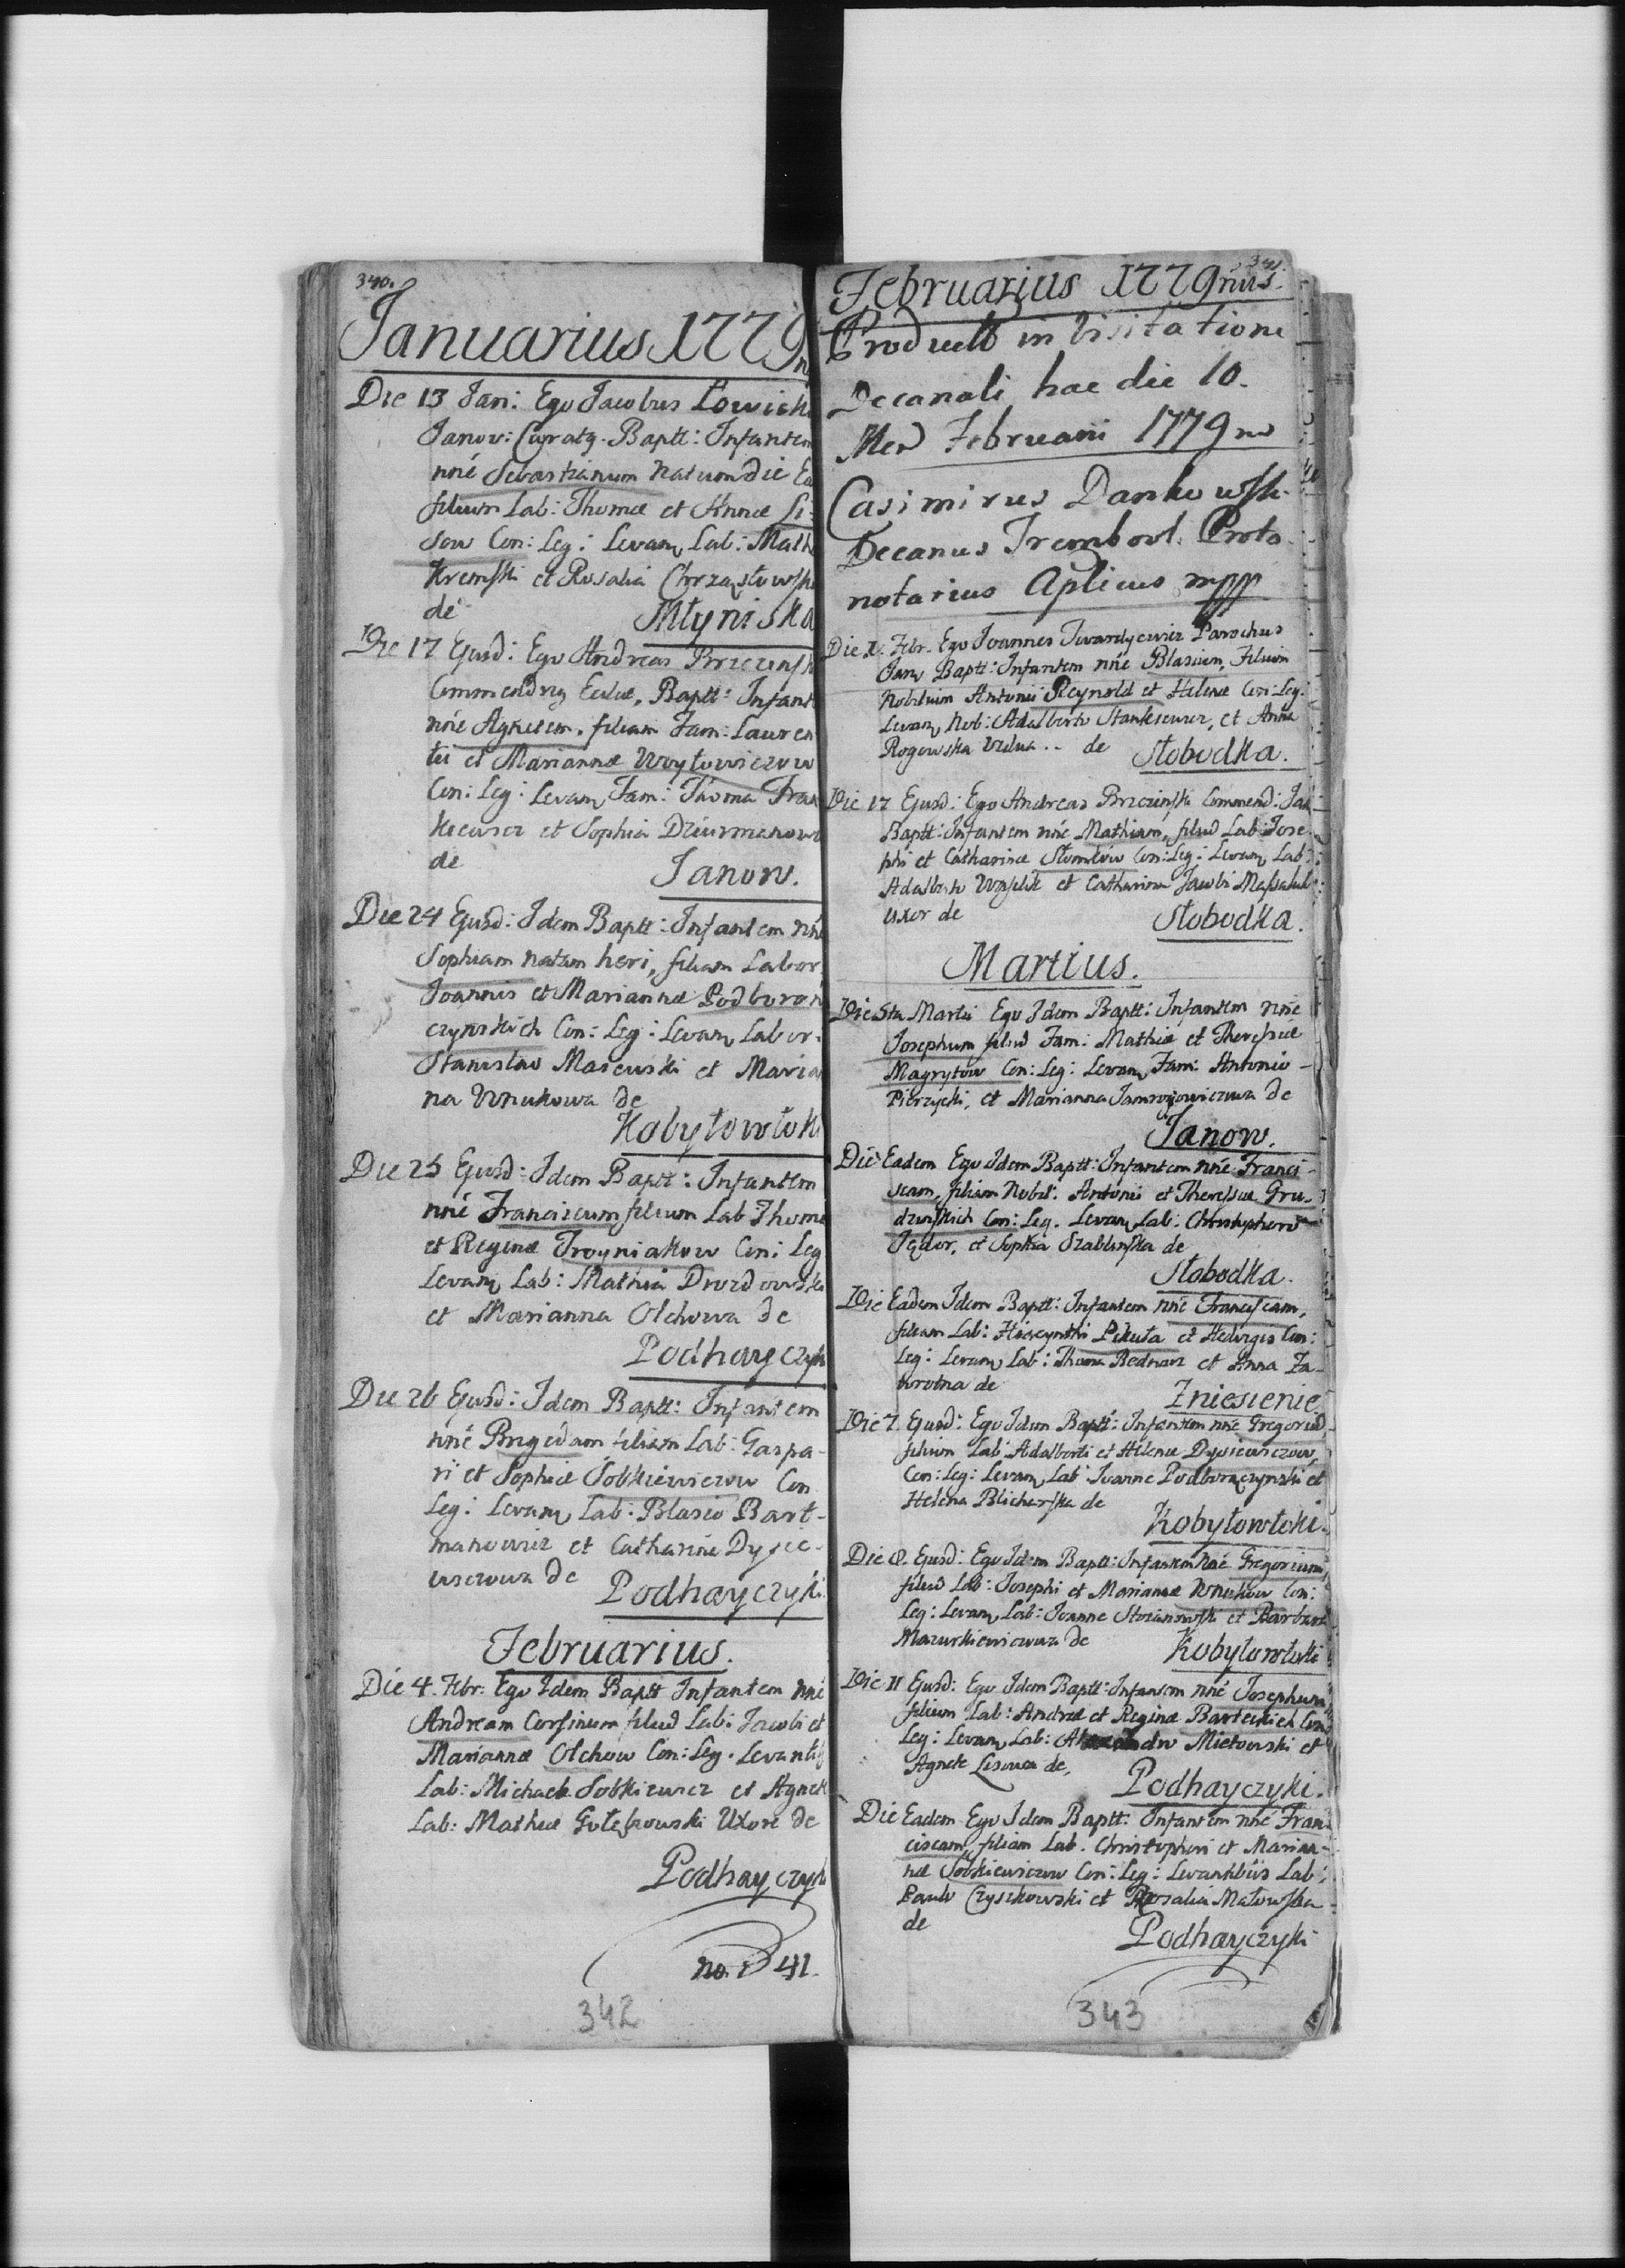 340.
Januarius 1779n
Die 13 Jan: Ego Jacobus Łowick
Janov: Curatq. Baptt: Infantem
nné Sebastianum natum die Ea
filium Lab: Thomæ et Annæ Li-
sow Con: Leg: Levanq Lab: Math
Kremski et Rosalia Chrząstowsk
de Młyniska
Die 17 Ejusd: Ego Andreas Brzezinsk
Commendrq Eccliæ, Baptt: Infant
nné Agnetem, filiam Fam: Lauren
tii et Mariannæ Woytowiczow
Con: Leg: Levanq Fam: Thoma Fran
kiewicz et Sophia Dziurmanowa
de Janow.
Die 24 Ejusd: Idem Baptt: Infantem nné
Sophiam natam heri, filiam Labor
Joannis et Mariannæ Podborон
czynskich Con: Leg: Levanq Labor:
Stanislao Masewski et Maria
na Wnukowa de
Kobyłowłok
Die 25 Ejusd: Idem Baptt: Infantem
nné Franciscum filium Lab Thomæ
et Reginæ Troyniakow Con: Leg
Levanq Lab: Mathia Drozdowski
et Marianna Olchowa de
Podhayczyk
Die 26 Ejusd: Idem Baptt: Infantem
nné Brigidam filiam Lab: Gaspa-
ri et Sophiæ Sobkiewiczow Con
Leg: Levanq Lab: Blasio Bart-
manowicz et Catharina Dysie-
wiczowa de Podhayczyki
Februarius.
Die 4. Febr: Ego Idem Baptt Infantem nné
Andream Corsinum filiud Lab: Jacobi et
Mariannæ Olchow Con: Leg. Levantib
Lab: Michaele Sobkiewicz et Agnete
Lab: Mathei Gołębiowski Uxore de
Podhayczyk
no. 41.
342
341.
Februarius 1779nus.
Producto in Visitatione
Decanali hac die 10.
Men Februarii 1779no
Casimirus Dankowski
Decanus Trembowl. Proto-
notarius Aplicus mpp
Die Febr. Ego Joannes Twardyewicz Parochus
Janq Baptt: Infantem nné Blasium, Filium
Nobilium Antonii Reynold et Helenæ Con: Leg:
Levanq Nob: Adalberto Stankiewicz, et Anna
Rogowska Vidua.. de Słobodka.
Die 17 Ejusd: Ego Andreas Brzezinski Commend: Jan
Baptt: Infantem nné Mathiam, filiud Lab: Jose-
phi et Catharinæ Słomkow Con: Leg: Levanq Lab:
Adalberto et Catharina Jacobi
uxor de Słobodka.
Martius.
Die 5ta Martii Ego Idem Baptt: Infantem nné
Josephum filiud Fam: Mathiæ et Theressiæ
Magrytow Con: Leg: Levanq Fam: Antonio
Pierzycki, et Marianna Jamroziowiczowa de
Janow.
Die Eadem Ego Idem Baptt: Infantem nné Franci-
scam, filiam Nobil: Antonii et Theressiæ Gru-
dzinskich Con: Leg. Levanq Lab: Christophoro
Jędor, et Sophia Szablinska de
Słobodka.
Die Eadem Idem Baptt: Infantem nné Franciscam,
filiam Lab: Hiacynthi Pikuta et Hedvigis Con:
Leg: Levanq Lab: Thoma Bednarz et Anna Za-
wrotna de Zniesienie
Die 7. Ejusd: Ego Idem Baptt: Infantem nné Gregoriud
filium Lab: Adalberti et Helenæ Dysiewiczow,
Con: Leg: Levanq Lab: Joanne Podborączynski et
Helena Blicharska de
Kobyłowłoki.
Die 8. Ejusd: Ego Idem Baptt: Infantem nné Gregorium,
filiud Lab: Josephi et Mariannæ Wnukow Con:
Leg: Levanq Lab: Joanne Stoianowski et Barbara
Mazurkiewiczowa de Kobyłowłoki
Die 11 Ejusd: Ego Idem Baptt: Infantem nné Josephum
filium Lab: Andreæ et Reginæ Barteckich Con
Leg: Levanq Lab: Mietowski et
Agnete Lisowa de,
Podhayczyki.
Die Eadem Ego Idem Baptt: Infantem nné Fran-
ciscam, filiam Lab. Christophori et Marian-
næ Sobkiewiczow Con: Leg: Levantibus Lab:
Paulo Czyszkowski et Rosalia Matowska
de Podhayczyki
343